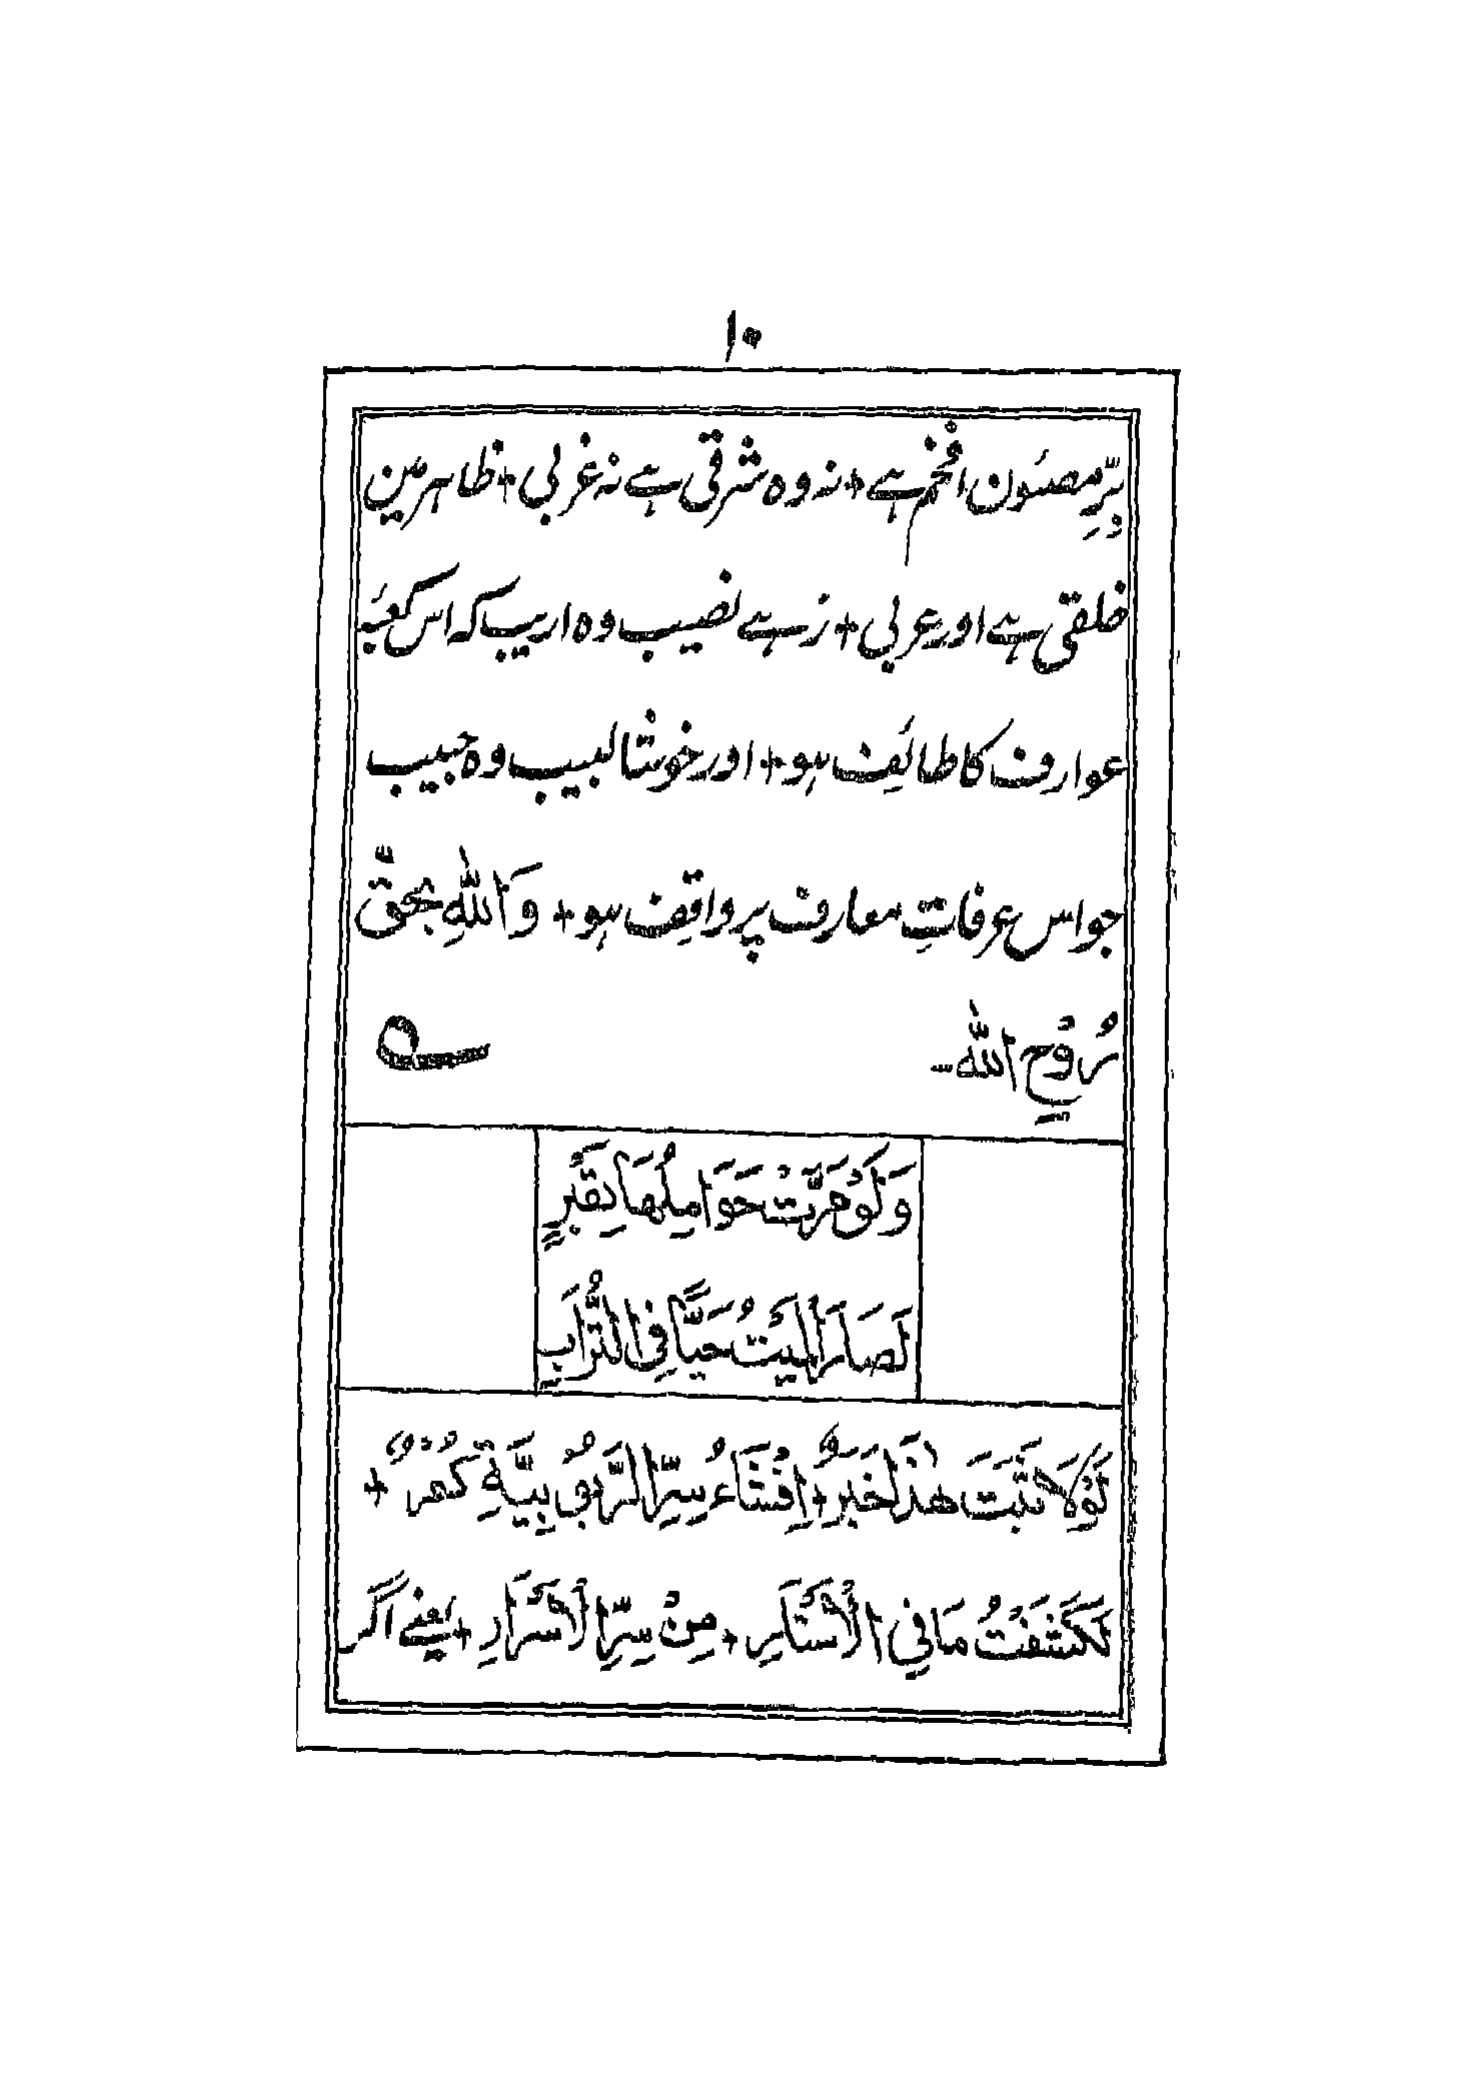 ۱۰
سِرِّ مصئون افخم ہے + نہ وہ شرقی ہے نہ غربی + ظاہر مین
خلقی ہے اور عربی + زہے نصیب وہ اریب کہ اس کعبۂ
عوارف کا طائف ہو + اور خوشا لبیب وہ حبیب
جو اس عرفاتِ معارف پر واقف ہو + وَاللهِ بحقّ
رُوْحِ الله
وَلَوْ مَرَّتْ حَوَامِلُهَا بِقَبْرٍ
لَصَارَ الْمَيْتُ حَيًّا فِي التُّرَابِ
لَوْلَا ثَبَتَ هٰذَا خَبَرٌ + اِفْشَاءُ سِرِّ الرَّبُوْبِيَّةِ كُفْرٌ +
لَكَشَفْتُ مَا فِي الْاَسْتَارِ + مِنْ سِرِّ الْاَسْرَارِ + یعنے اگر